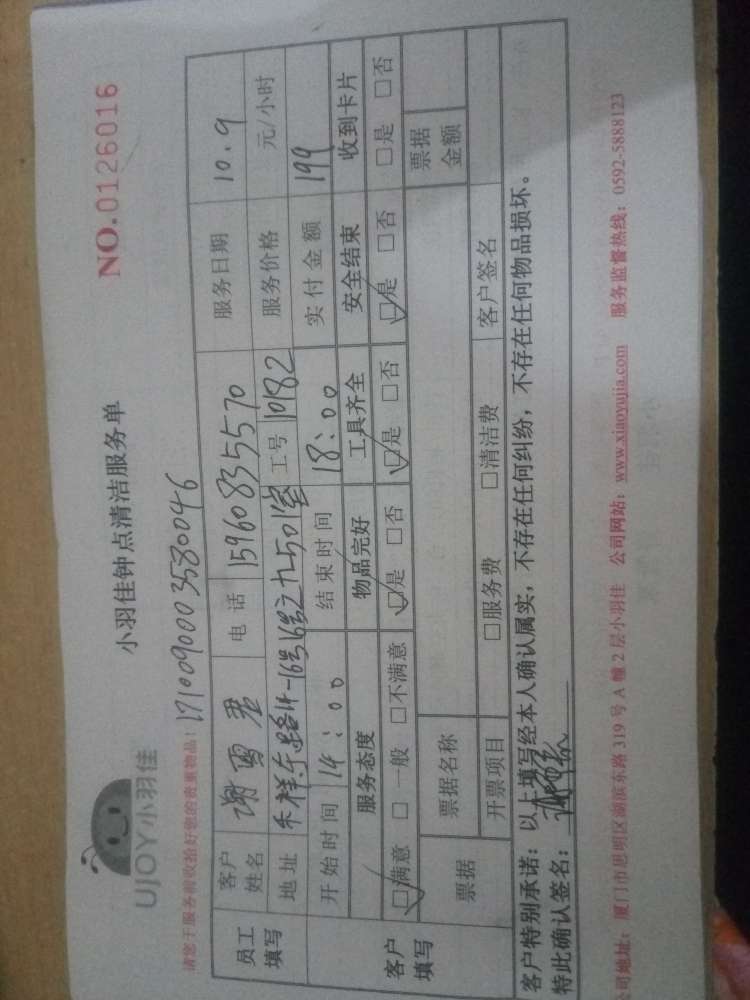 UJOY小羽佳
小羽佳钟点清洁服务单
NO.0126016
请您于服务前收拾好您的贵重物品!
1710090003580046
员工填写
客户姓名 谢雪君 电话 15960835570 服务日期 10.9
地址 禾祥东路14-16号之九501室 工号 10182 服务价格 元/小时
开始时间 14:00 结束时间 18:00 实付金额 199
客户填写
服务态度 物品完好 工具齐全 安全结束 收到卡片
☑满意 □一般 □不满意 ☑是 □否 ☑是 □否 ☑是 □否 □是 □否
票据 票据名称 票据金额
开票项目 □服务费 □清洁费 客户签名
客户特别承诺：以上填写经本人确认属实，不存在任何纠纷，不存在任何物品损坏。
特此确认签名：
公司地址：厦门市思明区湖滨东路319号A幢2层小羽佳 公司网站：www.xiaoyujia.com 服务监督热线：0592-5888123